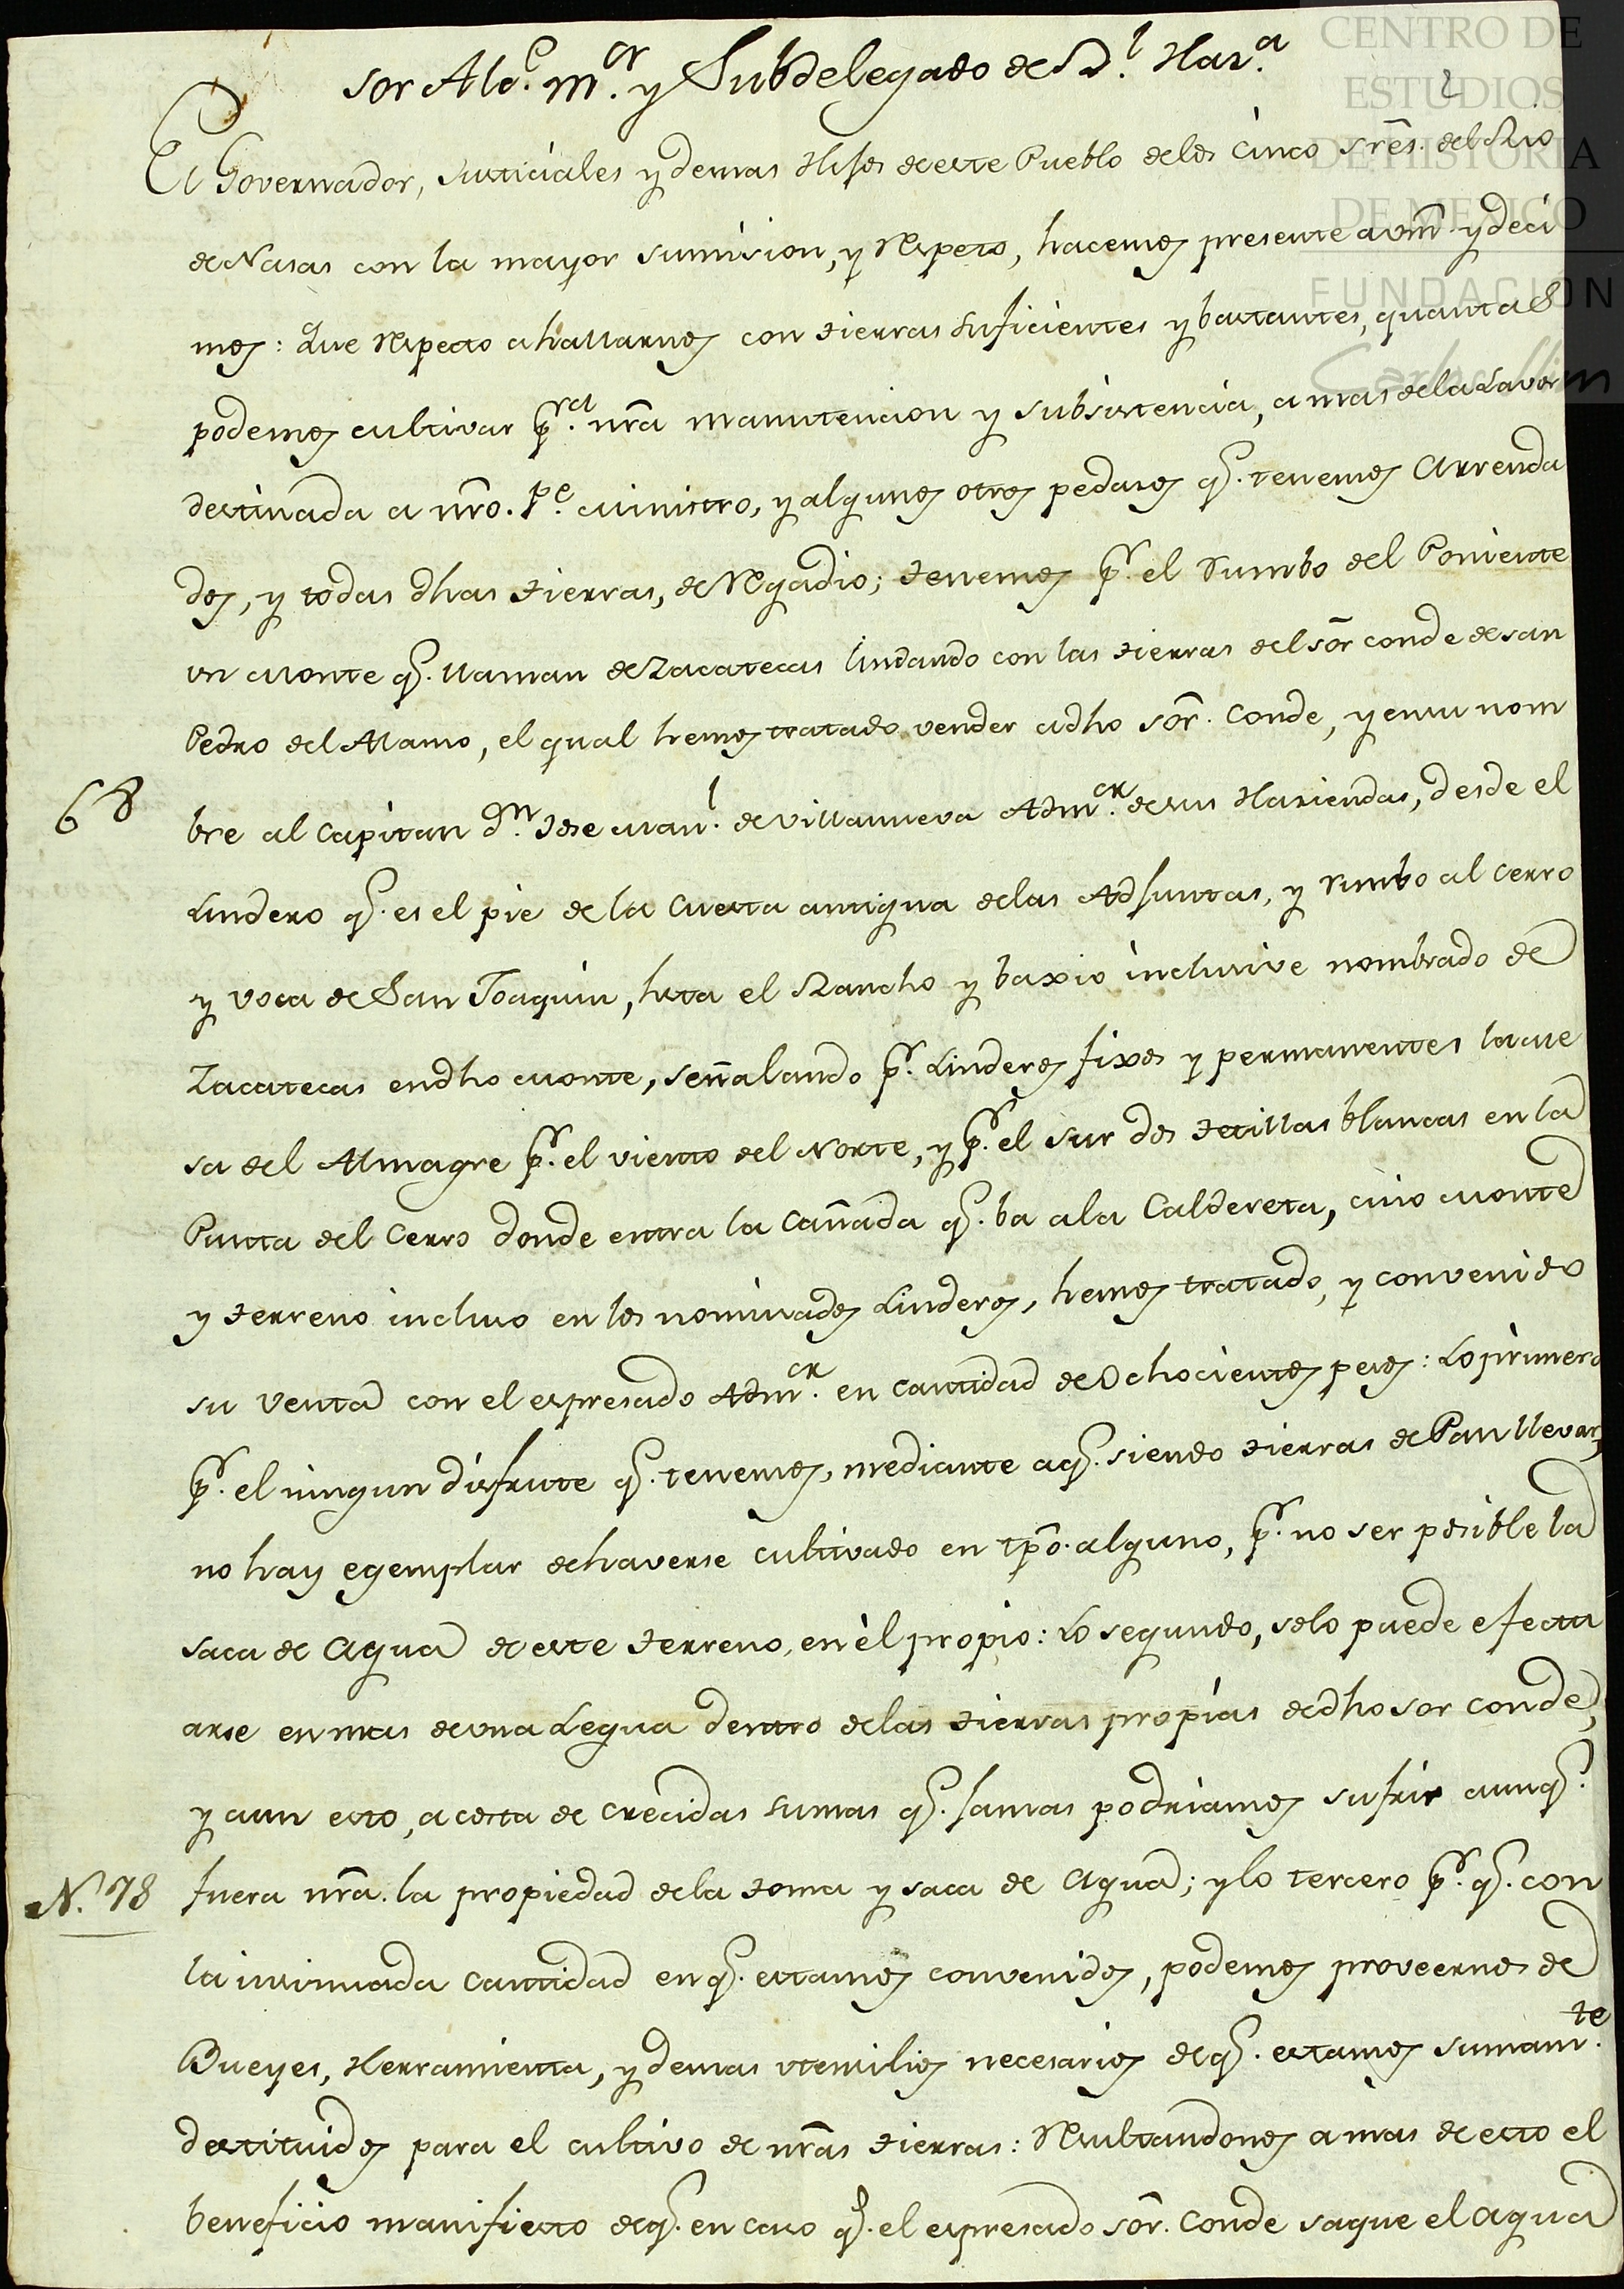 CENTRO DE
ESTUDIOS
DE HISTORIA
DE MEXICO
FUNDACIÓN
Carlos Slim
2
Sor Alce. mor. y Subdelegado de Rl. Haza.
El Governador, Justiciales y demas Hijos de este Pueblo de los cinco Sres. del Rio
de Nasas con la mayor sumision, y Respeto, hacemos presente a vm. y deci
mos: Que Respecto a hallarnos con tierras suficientes y bastantes, quantas
podemos cultivar pra. nra manutencion y subsistencia, a mas de la Lavor
destinada a nro. Pe. Ministro, y algunos otros pedasos q. tenemos Arrenda
dos, y todas dhas tierras, de Regadio; tenemos pr. el rumbo del Poniente
un Monte q. llaman de Zacatecas lindando con las tierras del sór conde de san
Pedro del Alamo, el qual hemos tratado vender a dho sór. Conde, y en su nom
68
bre al Capitan Dn. Jose Manl. de Villanueva Admor. de sus Haziendas, desde el
Lindero q. es el pie de la Cuesta antigua de las Adjuntas, y rumbo al Cerro
y voca de San Joaquin, hsta el Rancho y baxio inclusive nombrado de
Zacatecas en dho Monte, señalando pr. Linderos fixos y permanentes la Me
sa del Almagre pr. el viento del Norte, y pr. el sur dos tetillas blancas en la
Punta del Cerro donde entra la Cañada q. ba a la Caldereta, cuio Monte
y terreno incluso en los nominados Linderos, hemos tratado, y convenido
su venta con el espresado Admor. en cantidad de Ochocientos pesos: Lo primero
pr. el ningun disfrute q. tenemos, mediante a q. siendo tierras de Pan llevar,
no hay egemplar de haverse cultivado en tpo. alguno, pr. no ser posible la
saca de Agua de este terreno, en èl propio: Lo segundo, solo puede efectu
arse en mas de una Legua dentro de las tierras propias de dho sor conde,
y aun esto, a costa de crecidas sumas q. jamas podriamos sufrir aunq.
N. 78
fuera nra. la propiedad de la toma y saca de Agua; y lo tercero pr. q. con
la insinuada cantidad en q. estamos convenidos, podemos proveernos de
Bueyes, Herramienta, y demas utensilios necesarios de q. estamos sumamte.
destituidos para el cultivo de nras tierras: Resultandonos a mas de esto el
beneficio manifiesto de q. en caso q. el espresado sór. Conde saque el Agua